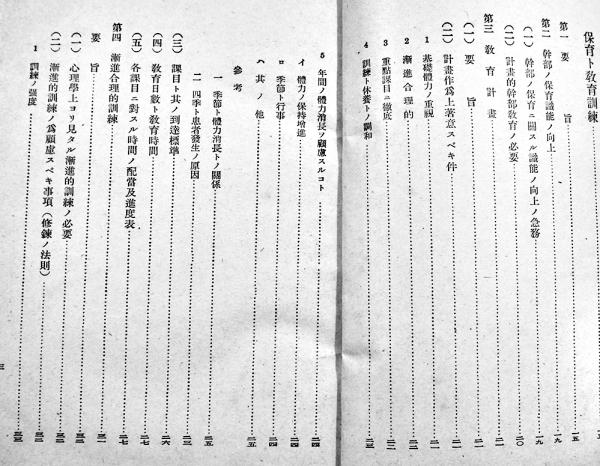 保育ト教育訓練
第一 要 旨……一五
第二 幹部ノ保育識能ノ向上……一九
(一) 幹部ノ保育ニ關スル識能ノ向上ノ急務……一九
(二) 計畫的幹部教育ノ必要……二〇
第三 教育計畫……二一
(一) 要 旨……二一
(二) 計畫作爲上著意スベキ件……二一
1 基礎體力ノ重視……二一
2 漸進合理的……二一
3 重點課目ニ徹底……二二
4 訓練ト休養トノ調和……二三
5 年間ノ體力消長ヲ顧慮スルコト……二四
イ 體力ノ保持增進……二四
ロ 季節ト行事……二四
ハ 其ノ他……二五
參考
一 季節ト體力消長トノ關係……二五
二 四季ト患者發生ノ原因……二三
(三) 課目ト其ノ到達標準……二六
(四) 教育日數ト教育時間……二七
(五) 各課目ニ對スル時間ノ配當及進度表……二七
第四 漸進合理的訓練……三一
要 旨……三一
(一) 心理學上ヨリ見タル漸進的訓練ノ必要……三二
(二) 漸進的訓練ノ爲顧慮スベキ事項(修鍊ノ法則)……三二
1 訓練ノ强度……三三
三